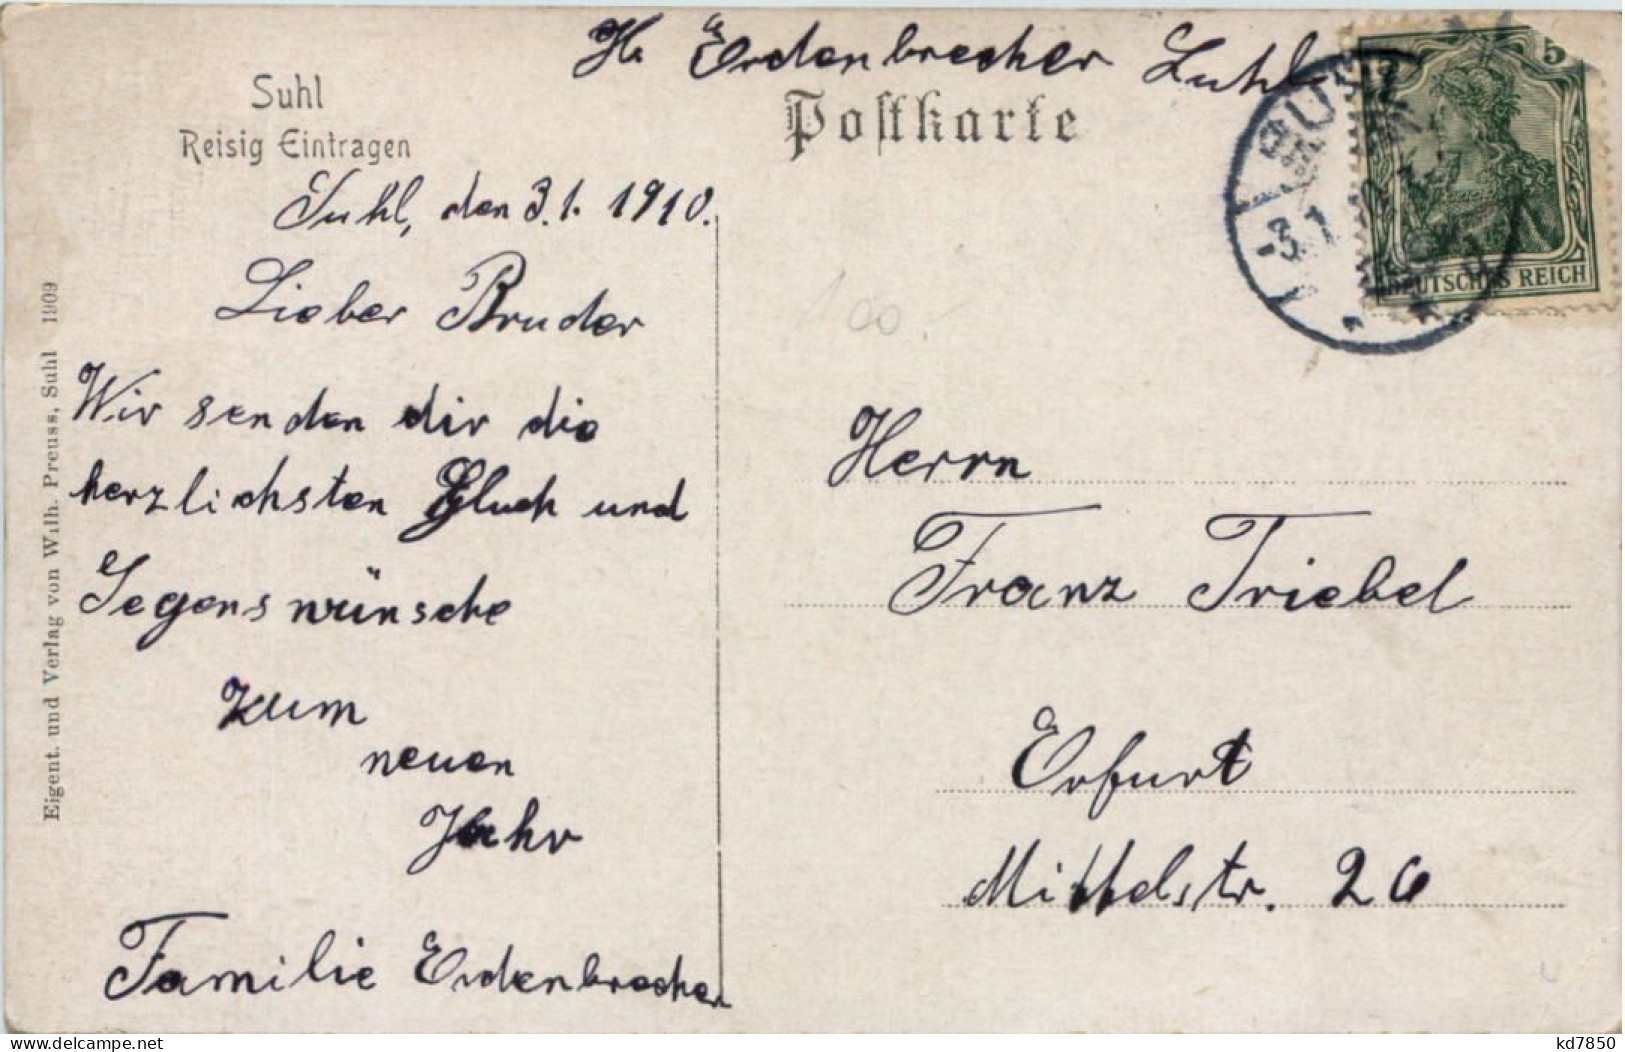 H. Erdenbrecher Suhl
Suhl
Reisig Eintragen
Postkarte
5
DEUTSCHES REICH
SUHL
3.1.
Suhl, den 3.1.1910.
Lieber Bruder
Wir senden dir die
herzlichsten Glück und
Segens wünsche
zum
neuen
Jahr
Familie Erdenbrecher
Herrn
Franz Triebel
Erfurt
Mittelstr. 26
100.-
Eigent. und Verlag von Wilh. Preuss, Suhl 1909
delcampe.net
kd7850